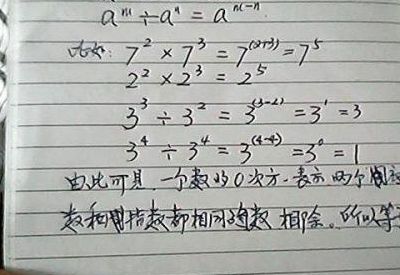 a^m ÷ a^n = a^(m-n)
比如: 7^2 × 7^3 = 7^(2+3) = 7^5
2^2 × 2^3 = 2^5
3^3 ÷ 3^2 = 3^(3-2) = 3^1 = 3
3^4 ÷ 3^4 = 3^(4-4) = 3^0 = 1
由此可见 一个数的0次方. 表示 两个
数和指数都相同的数 相除。所以等